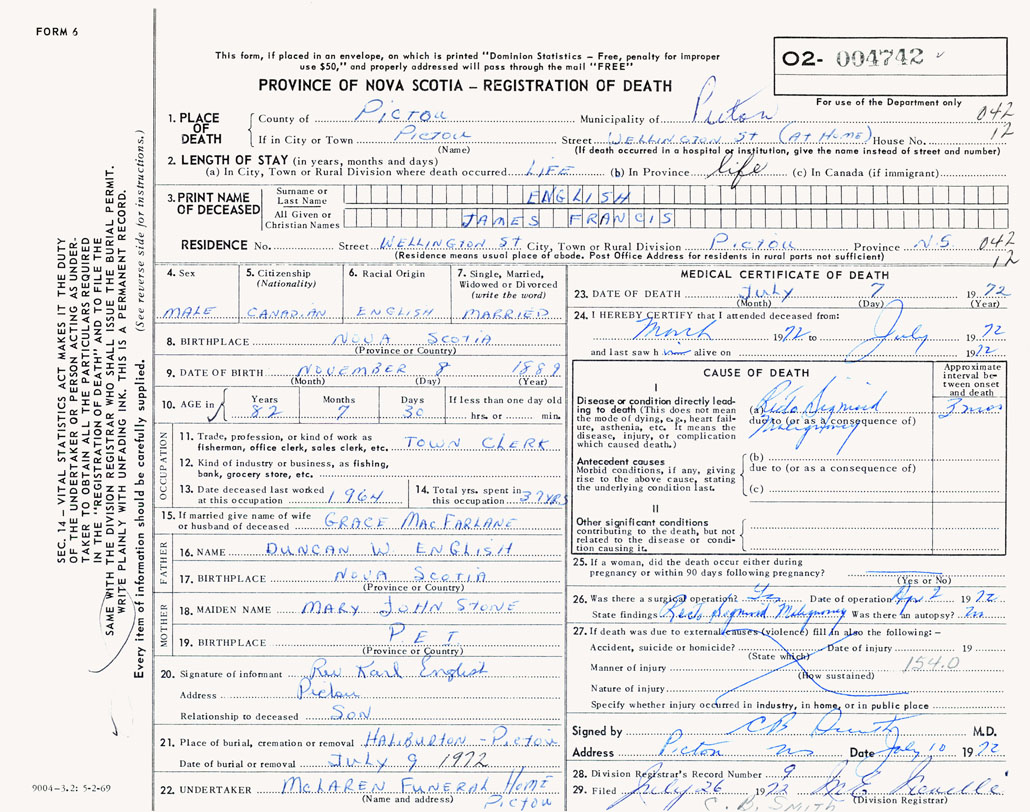 FORM 6
This form, if placed in an envelope, on which is printed "Dominion Statistics – Free, penalty for improper
use $50," and properly addressed will pass through the mail "FREE"
O2- 004742
For use of the Department only
PROVINCE OF NOVA SCOTIA – REGISTRATION OF DEATH
1. PLACE OF DEATH
County of PICTOU Municipality of Pictou 042
If in City or Town PICTOU Street WELLINGTON ST (AT HOME) House No. 12
(Name) (If death occurred in a hospital or institution, give the name instead of street and number)
2. LENGTH OF STAY (in years, months and days)
(a) In City, Town or Rural Division where death occurred LIFE (b) In Province life (c) In Canada (if immigrant)
3. PRINT NAME OF DECEASED
Surname or Last Name ENGLISH
All Given or Christian Names JAMES FRANCIS
RESIDENCE No. Street WELLINGTON ST City, Town or Rural Division PICTOU Province N.S. 042
(Residence means usual place of abode. Post Office Address for residents in rural parts not sufficient) 12
4. Sex
MALE
5. Citizenship
(Nationality)
CANADIAN
6. Racial Origin
ENGLISH
7. Single, Married,
Widowed or Divorced
(write the word)
MARRIED
8. BIRTHPLACE NOVA SCOTIA
(Province or Country)
9. DATE OF BIRTH NOVEMBER 8 1889
(Month) (Day) (Year)
10. AGE in
Years Months Days If less than one day old
82 7 30 hrs. or min.
OCCUPATION
11. Trade, profession, or kind of work as
fisherman, office clerk, sales clerk, etc. TOWN CLERK
12. Kind of industry or business, as fishing,
bank, grocery store, etc.
13. Date deceased last worked
at this occupation 1964
14. Total yrs. spent in
this occupation 37 YRS
15. If married give name of wife
or husband of deceased GRACE MACFARLANE
FATHER
16. NAME DUNCAN W ENGLISH
17. BIRTHPLACE NOVA SCOTIA
(Province or Country)
MOTHER
18. MAIDEN NAME MARY JOHN STONE
19. BIRTHPLACE P E I
(Province or Country)
20. Signature of informant Rev Karl English
Address Pictou
Relationship to deceased SON
21. Place of burial, cremation or removal HALIBURTON - PICTOU
Date of burial or removal JULY 9 1972
22. UNDERTAKER McLAREN FUNERAL HOME
(Name and address) PICTOU
MEDICAL CERTIFICATE OF DEATH
23. DATE OF DEATH July 7 1972
(Month) (Day) (Year)
24. I HEREBY CERTIFY that I attended deceased from:
March 1972 to July 1972
and last saw him alive on 1972
CAUSE OF DEATH
Approximate
interval be-
tween onset
and death
I
Disease or condition directly lead-
ing to death (This does not mean
the mode of dying, e.g., heart fail-
ure, asthenia, etc. It means the
disease, injury, or complication
which caused death.)
(a) Recto Sigmoid
due to (or as a consequence of)
Malignancy
3 mos
Antecedent causes
Morbid conditions, if any, giving
rise to the above cause, stating
the underlying condition last.
(b)
due to (or as a consequence of)
(c)
II
Other significant conditions
contributing to the death, but not
related to the disease or condi-
tion causing it.
25. If a woman, did the death occur either during
pregnancy or within 90 days following pregnancy?
(Yes or No)
26. Was there a surgical operation? Yes Date of operation Apr 2 1972
State findings Recto Sigmoid Malignancy Was there an autopsy? no
27. If death was due to external causes (violence) fill in also the following: –
Accident, suicide or homicide? Date of injury 19
(State which)
Manner of injury 154.0
(How sustained)
Nature of injury
Specify whether injury occurred in industry, in home, or in public place
Signed by C B Smith M.D.
Address Pictou NS Date July 10 1972
28. Division Registrar's Record Number 9
29. Filed July 26 1972
(Division Registrar)
C. B. SMITH
SEC. 14 – VITAL STATISTICS ACT MAKES IT THE DUTY
OF THE UNDERTAKER OR PERSON ACTING AS UNDER-
TAKER TO OBTAIN ALL THE PARTICULARS REQUIRED
IN THE "REGISTRATION OF DEATH" AND TO FILE THE
SAME WITH THE DIVISION REGISTRAR WHO SHALL ISSUE THE BURIAL PERMIT.
WRITE PLAINLY WITH UNFADING INK. THIS IS A PERMANENT RECORD.
Every item of information should be carefully supplied. (See reverse side for instructions.)
9004-3.2: 5-2-69